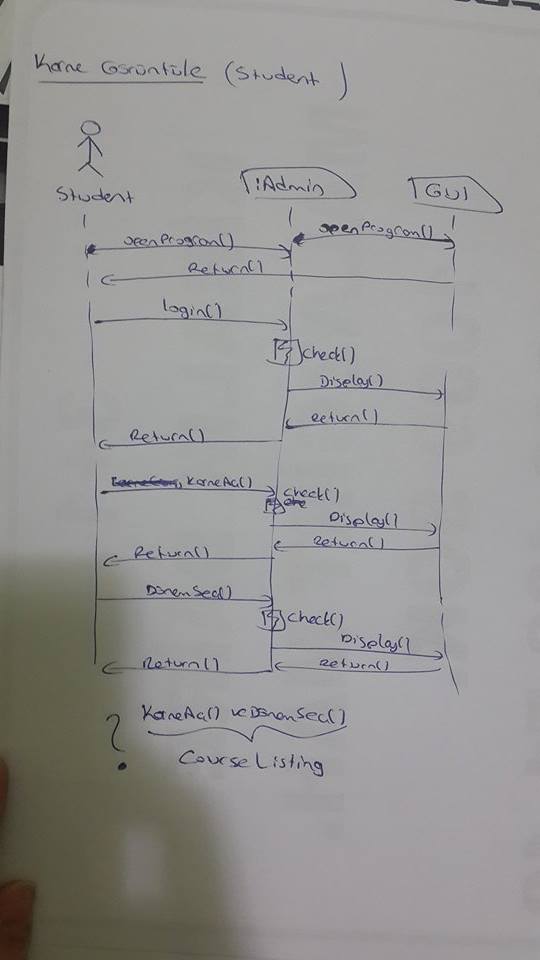 Karne Görüntüle (Student)
Student
:Admin
GUI
openProgram()
openProgram()
Return()
login()
check()
Display()
Return()
Return()
KarneAc()
check()
Display()
Return()
Return()
DönemSec()
check()
Display()
Return()
Return()
? KarneAc() ve DönemSec()
Course Listing